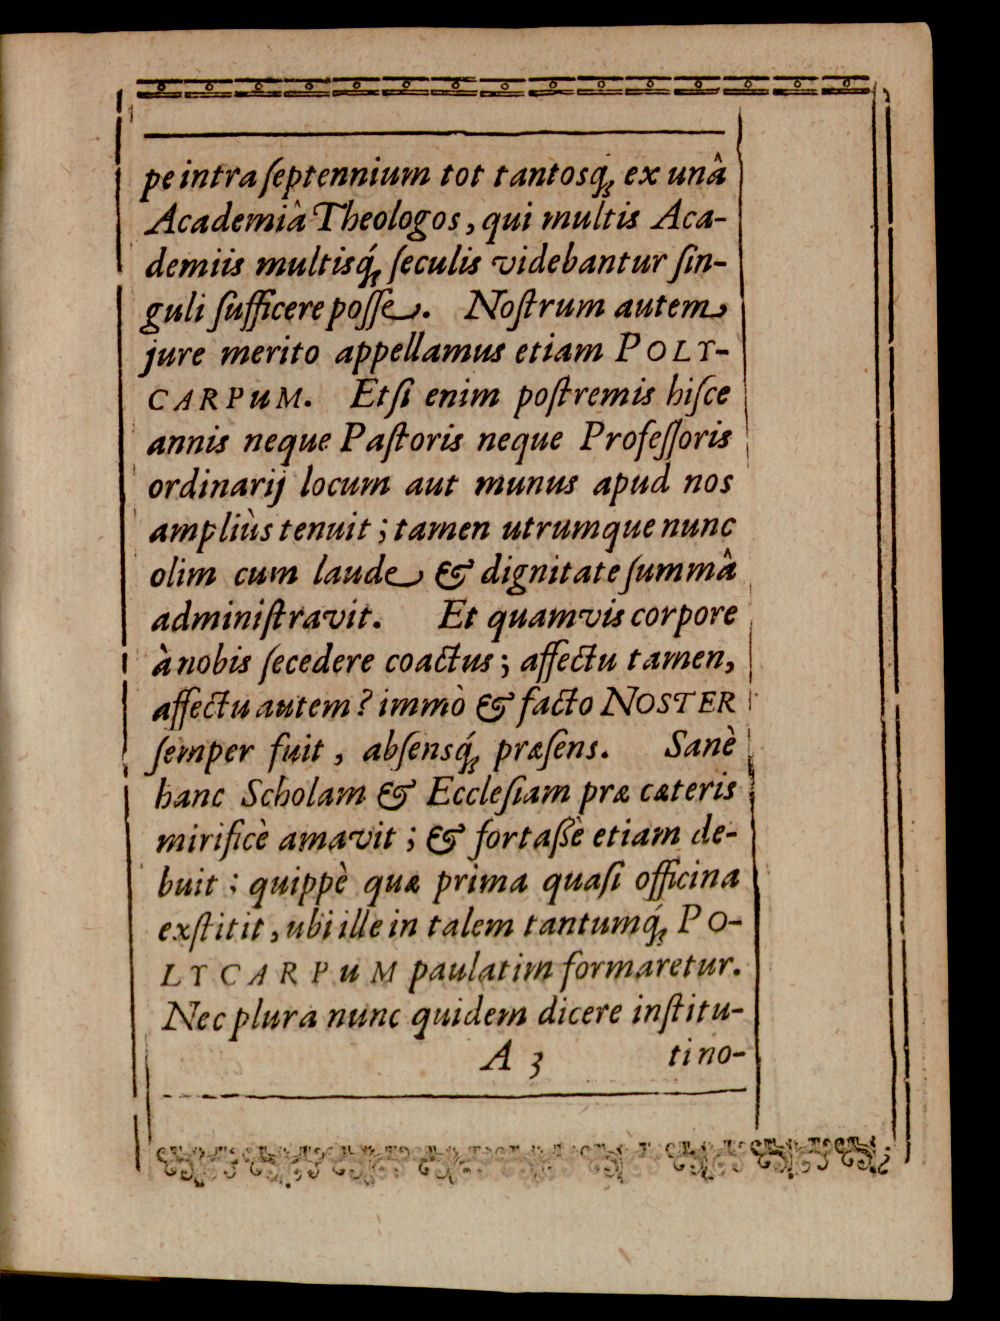 pe intra ſeptennium tot tantosq́; ex unâ
Academiâ Theologos, qui multis Aca-
demiis multisq́; ſeculis videbantur ſin-
guli ſufficere poſſe. Noſtrum autem
jure merito appellamus etiam POLY-
CARPUM. Etſi enim poſtremis hiſce
annis neque Paſtoris neque Profeſſoris
ordinarij locum aut munus apud nos
ampliùs tenuit; tamen utrumque nunc
olim cum laude & dignitate ſummâ
adminiſtravit. Et quamvis corpore
à nobis ſecedere coactus; affectu tamen,
affectu autem? immò & facto NOSTER
ſemper fuit, abſensq́; præſens. Sanè
hanc Scholam & Eccleſiam præ cæteris
mirificè amavit; & fortaßè etiam de-
buit: quippè quæ prima quaſi officina
exſtitit, ubi ille in talem tantumq́; PO-
LYCARPUM paulatim formaretur.
Nec plura nunc quidem dicere inſtitu-
A 3 tino-